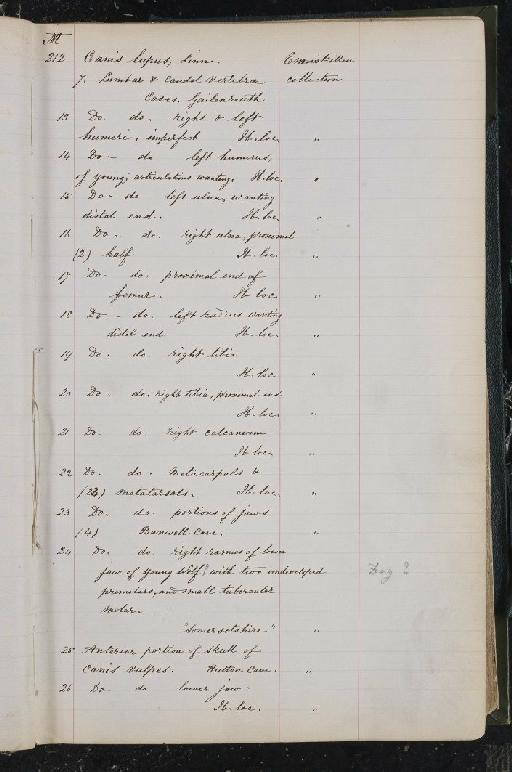 M
212 Canis lupus, Linn. Enniskillen
7. Lumbar & Caudal vertebra collection
Caves, Gailenreuth.
13 Do. do. right & left
humeri, imperfect Ib. loc. "
14 Do - do left humerus,
of young, articulations wanting. Ib. loc. "
15 Do - do left ulna, wanting
distal end. Ib. loc. "
16 Do. do. right ulna, proximal
(2) half Ib. loc. "
17 Do. do. proximal end of
femur. Ib. loc. "
18 Do - do. left radius wanting
distal end Ib. loc. "
19 Do. do. right tibia
Ib. loc "
20 Do. do. right tibia, proximal end
Ib. loc. "
21 Do. do right calcaneum
Ib. loc. "
22 Do. do. Metacarpals &
metatarsals. Ib. loc. "
23 Do. do. portions of jaws
(4) Banwell Cave. "
24 Do. do. right ramus of lower
jaw of "young Wolf", with two undeveloped Dog ?
premolars, and small tubercular
molar.
"Somersetshire-" "
25 Anterior portion of skull of
Canis vulpes. Hutton Cave. "
26 Do do lower jaw
Ib. loc. "